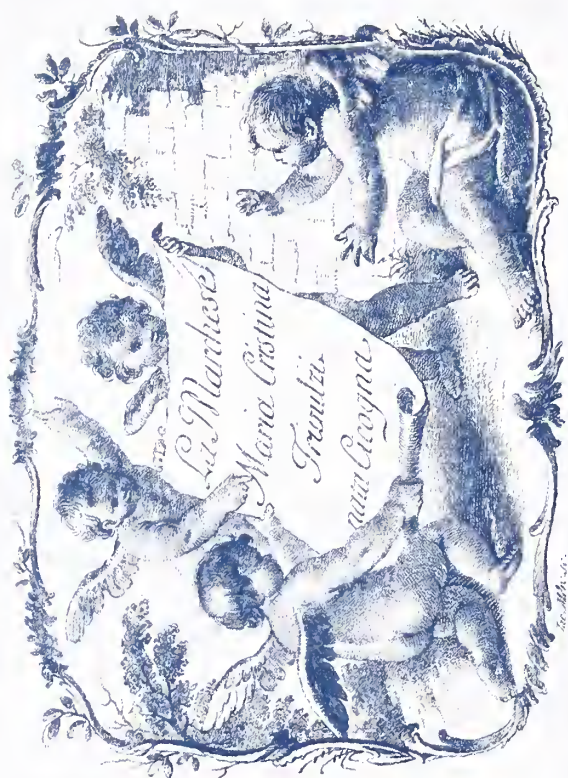 La Marchesé
Maria Cristina
Trivulzi
nata Cicogna